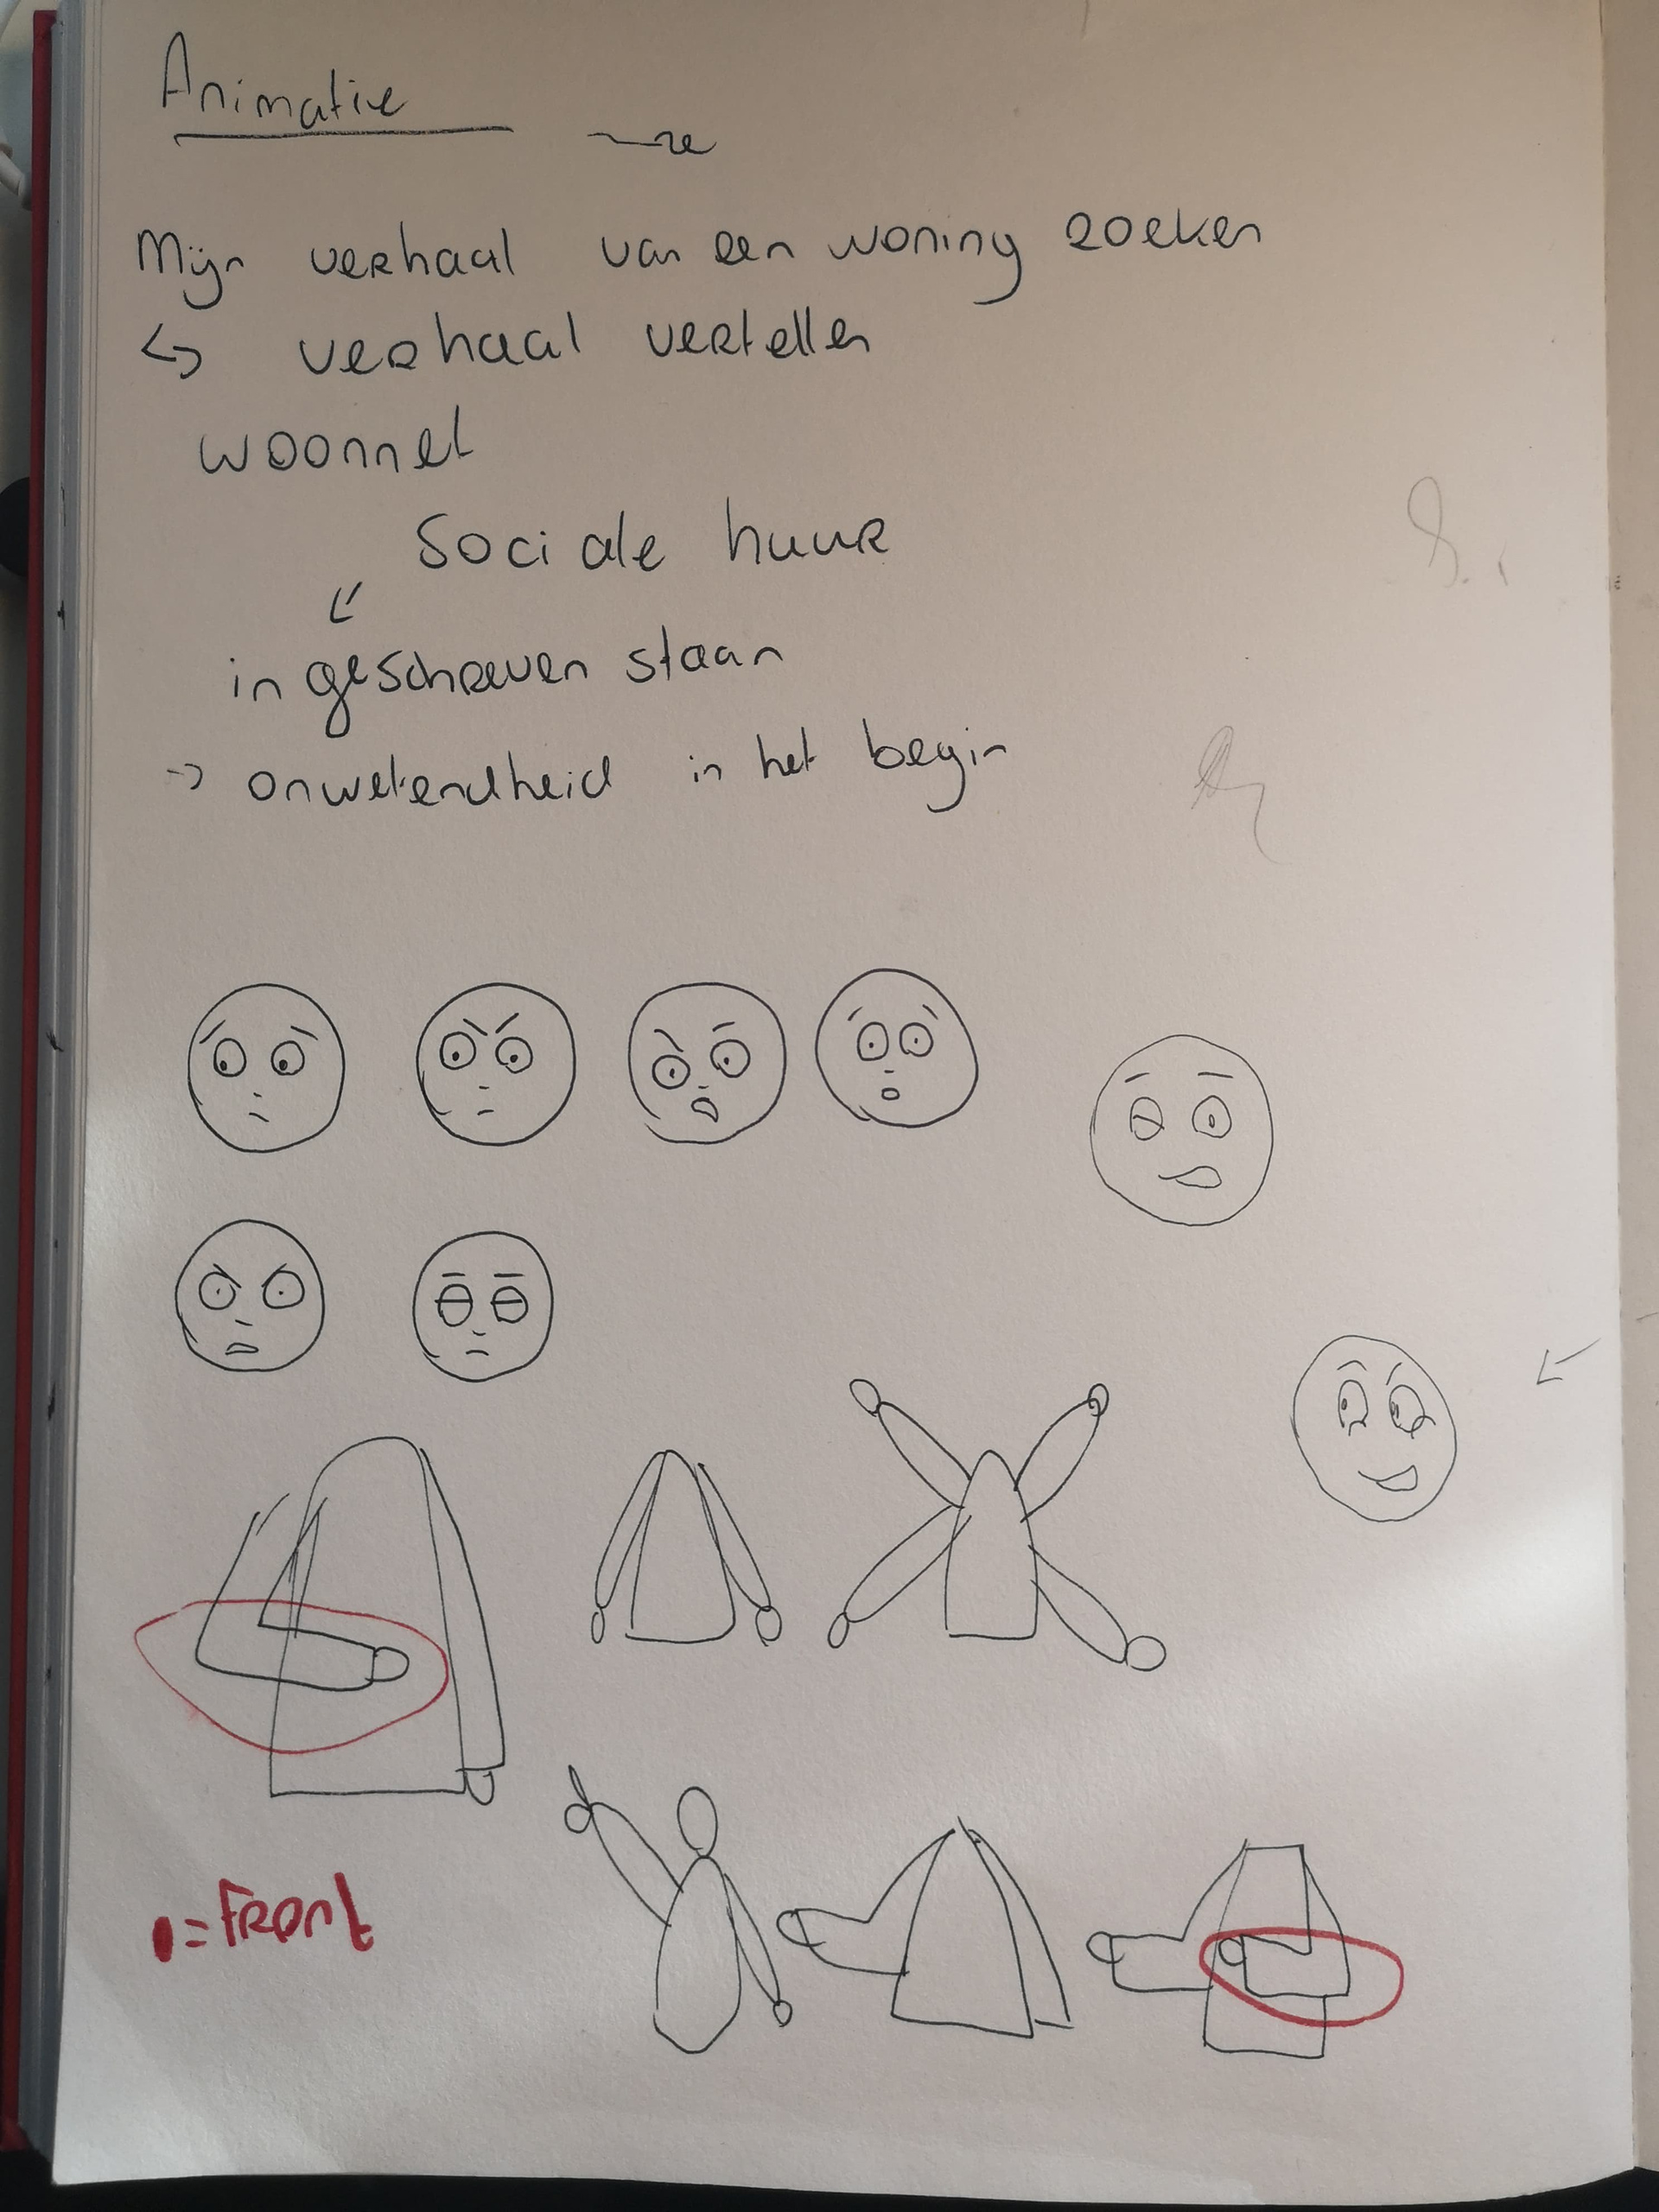 Animatie
Mijn verhaal van een woning zoeken
↳ verhaal vertellen
woonnet
Sociale huur
↙
ingeschreven staan
→ onwetendheid in het begin
= Front